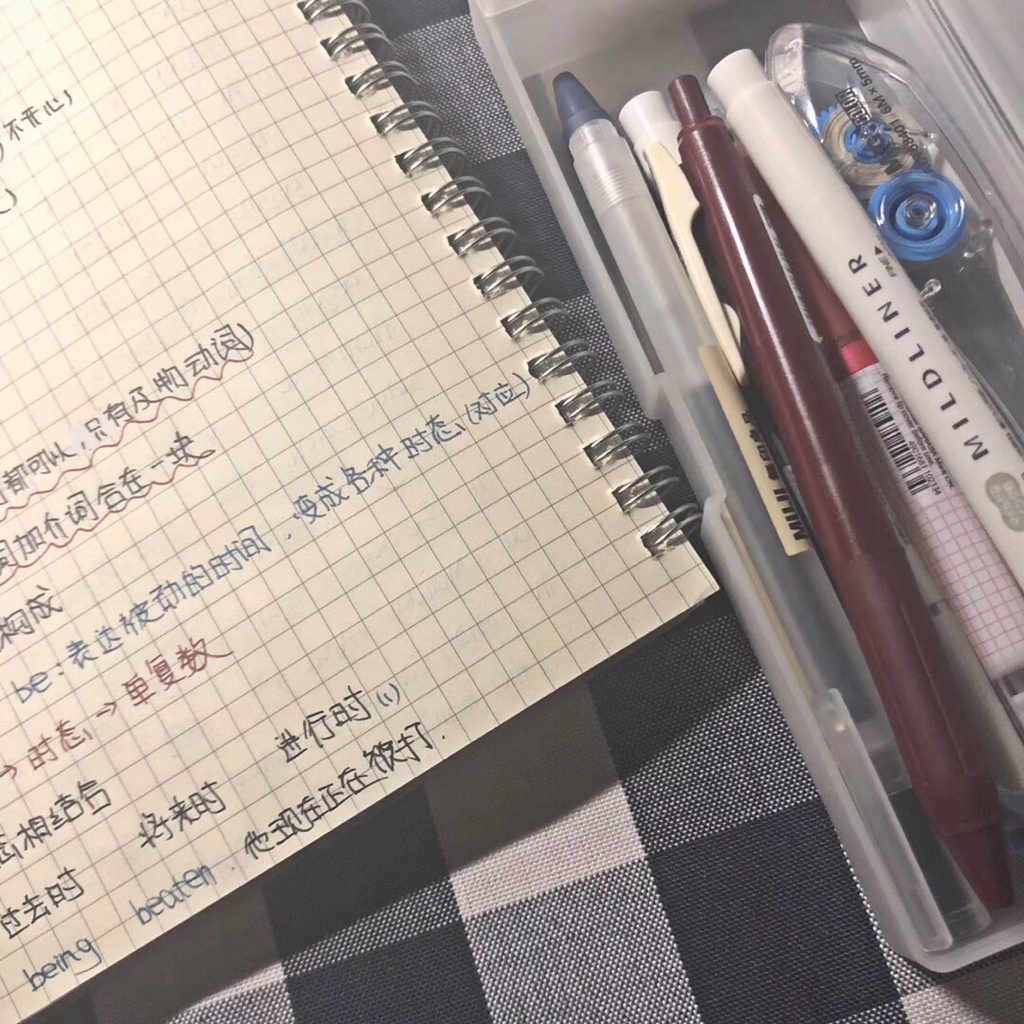 不开心)
都可以,只有及物动词)
词加介词合在一块
构成
be:表达被动的时间,变成各种时态,(对应)
→时态,→单复数
态相结合
过去时 将来时 进行时(1)
being beaten 他现在正在被打.
MILDLINER
FINE
MUJI 無印良品
6M×5mm